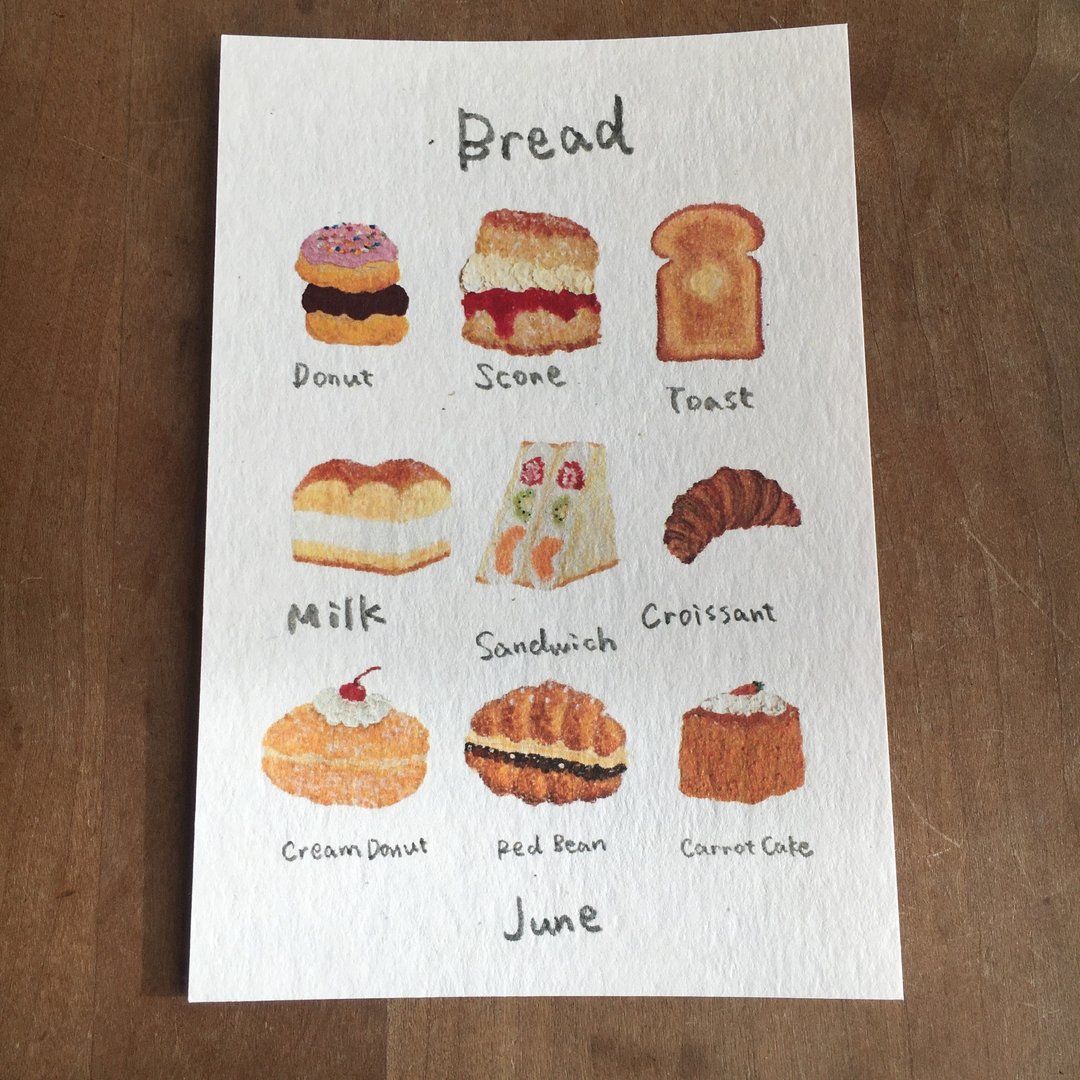 Bread
Donut
Scone
Toast
Milk
Sandwich
Croissant
Cream Donut
Red Bean
Carrot Cake
June